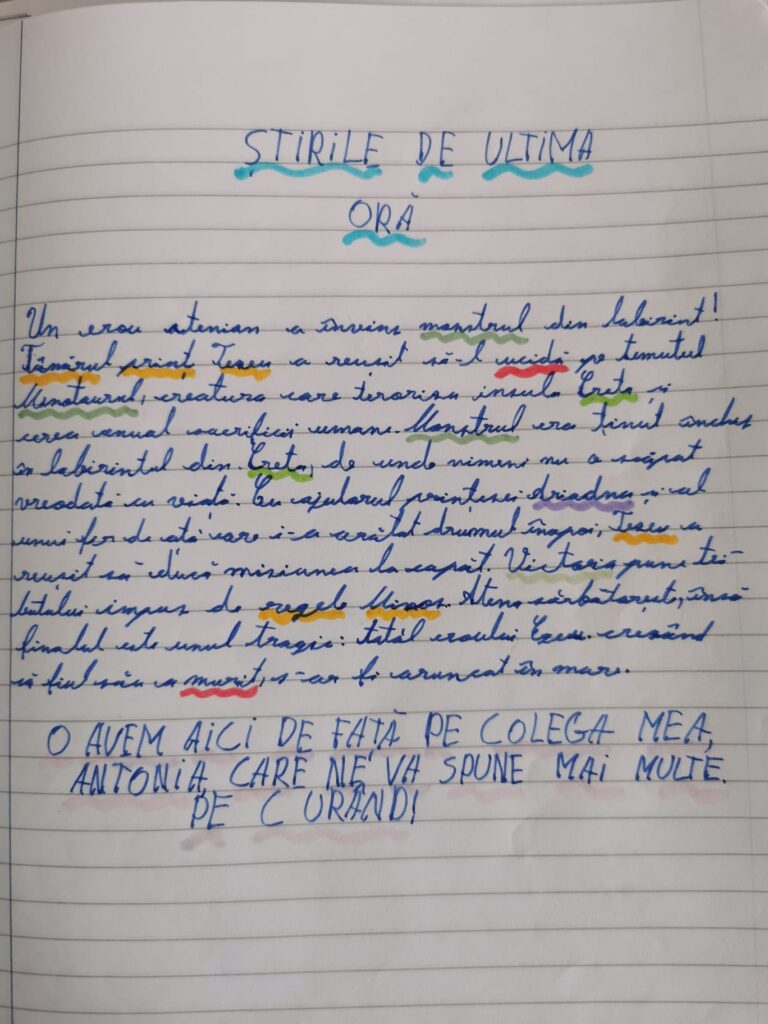 ȘTIRILE DE ULTIMA
ORĂ
Un erou atenian a învins monstrul din labirint!
Tânărul prinț Tezeu a reușit să-l ucidă pe temutul
Minotaurul, creatura care teroriza insula Creta și
cerea anual sacrificii umane. Monstrul era ținut închis
în labirintul din Creta, de unde nimeni nu a scăpat
vreodată cu viață. Cu ajutorul prințesei Ariadna și al
unui fir de ață care i-a arătat drumul înapoi, Tezeu a
reușit să ducă misiunea la capăt. Victoria pune tri-
butului impus de regele Minos. Atena sărbătorește, însă
finalul este unul tragic: tatăl eroului Egeu crezând
că fiul său a murit, s-ar fi aruncat în mare.
O AVEM AICI DE FAȚĂ PE COLEGA MEA,
ANTONIA, CARE NE VA SPUNE MAI MULTE.
PE CURÂND!